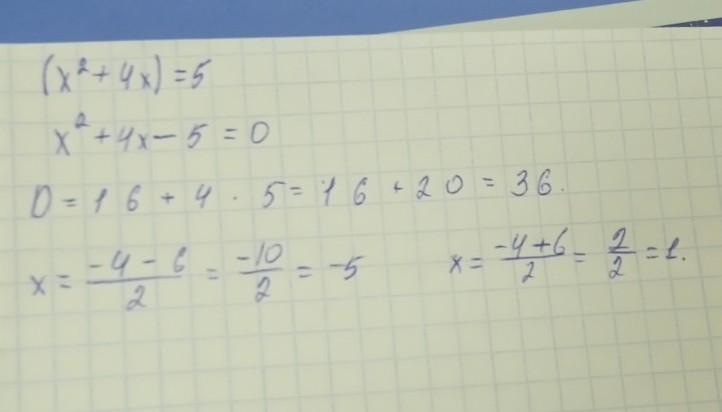 (x² + 4x) = 5
x² + 4x - 5 = 0
D = 16 + 4 · 5 = 16 + 20 = 36.
x = (-4 - 6)/2 = -10/2 = -5 x = (-4 + 6)/2 = 2/2 = 1.